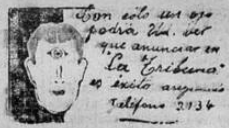 Con sólo un ojo
podría Ud. ver
que anunciar en
"La Tribuna"
es éxito asegurado
Teléfono 2934